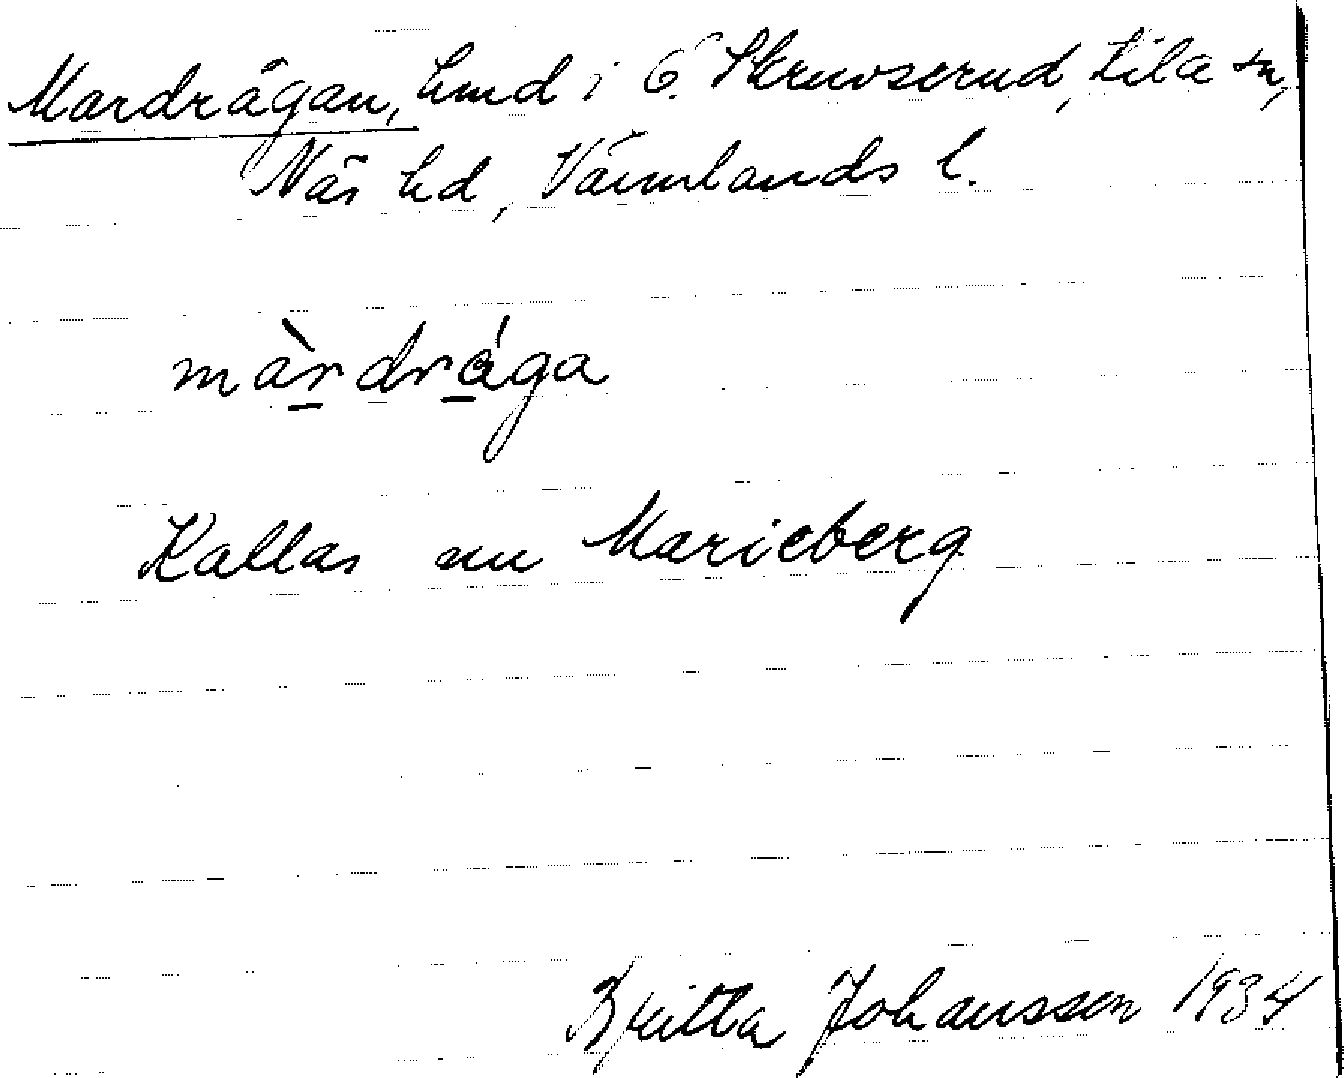 Mardrågan, hmd i Ö. Skruvserud, Kila sn,
Näs hd, Värmlands l.
màrdrága
Kallas nu Marieberg
Britta Johansson 1934